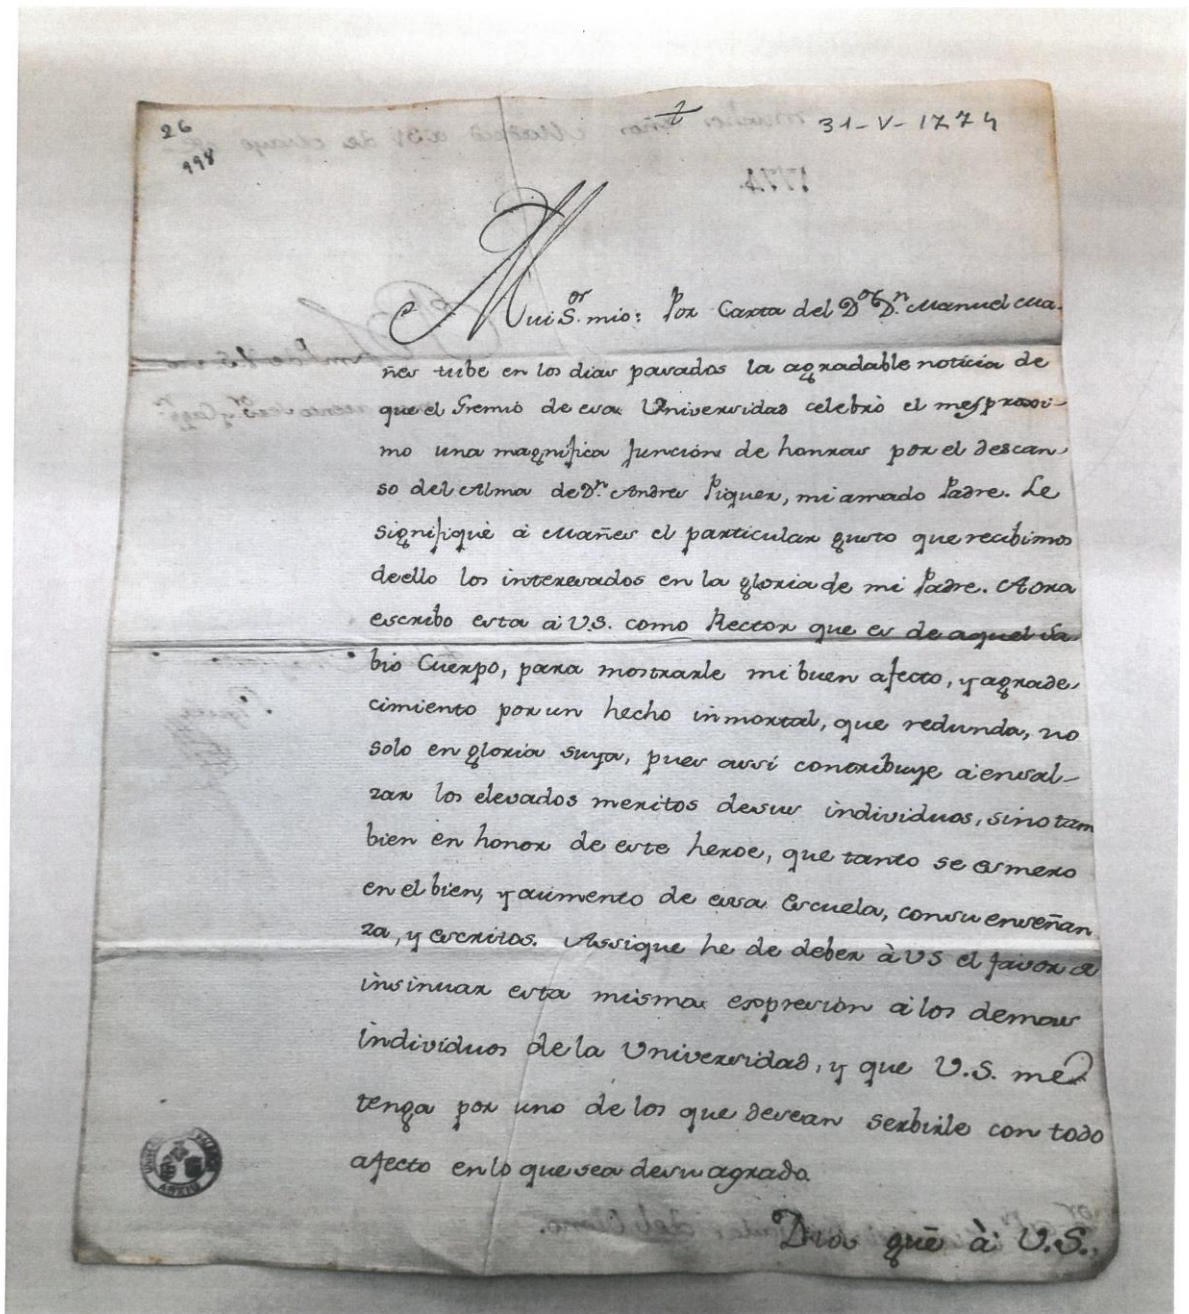 26
998
31-V-1774
Mui S.or mio: Por Carta del D.or D.n Manuel Ma-
ñes tube en los dias pasados la agradable noticia de
que el Gremio de esa Universidad celebrò el mes proxi-
mo una magnifica funcion de honras por el descan-
so del Alma de D.n Andres Piquer, mi amado Padre. Le
signifiquè à Mañes el particular gusto que recibimos
de ello los interesados en la gloria de mi Padre. Aora
escribo esta à V.S. como Rector que es de aquel Sa-
bio Cuerpo, para mostrarle mi buen afecto, y agrade-
cimiento por un hecho inmortal, que redunda, no
solo en gloria suya, pues assi contribuye à ensal-
zar los elevados meritos de sus individuos, sino tam
bien en honor de este heroe, que tanto se esmero
en el bien, y aumento de essa Escuela, con su enseñan
za, y escritos. Assi que he de deber à VS el favor de
insinuar esta misma expresion à los demas
individuos de la Universidad, y que V.S. me
tenga por uno de los que desean serbirle con todo
afecto en lo que sea de su agrado.
Dios gue à V.S.